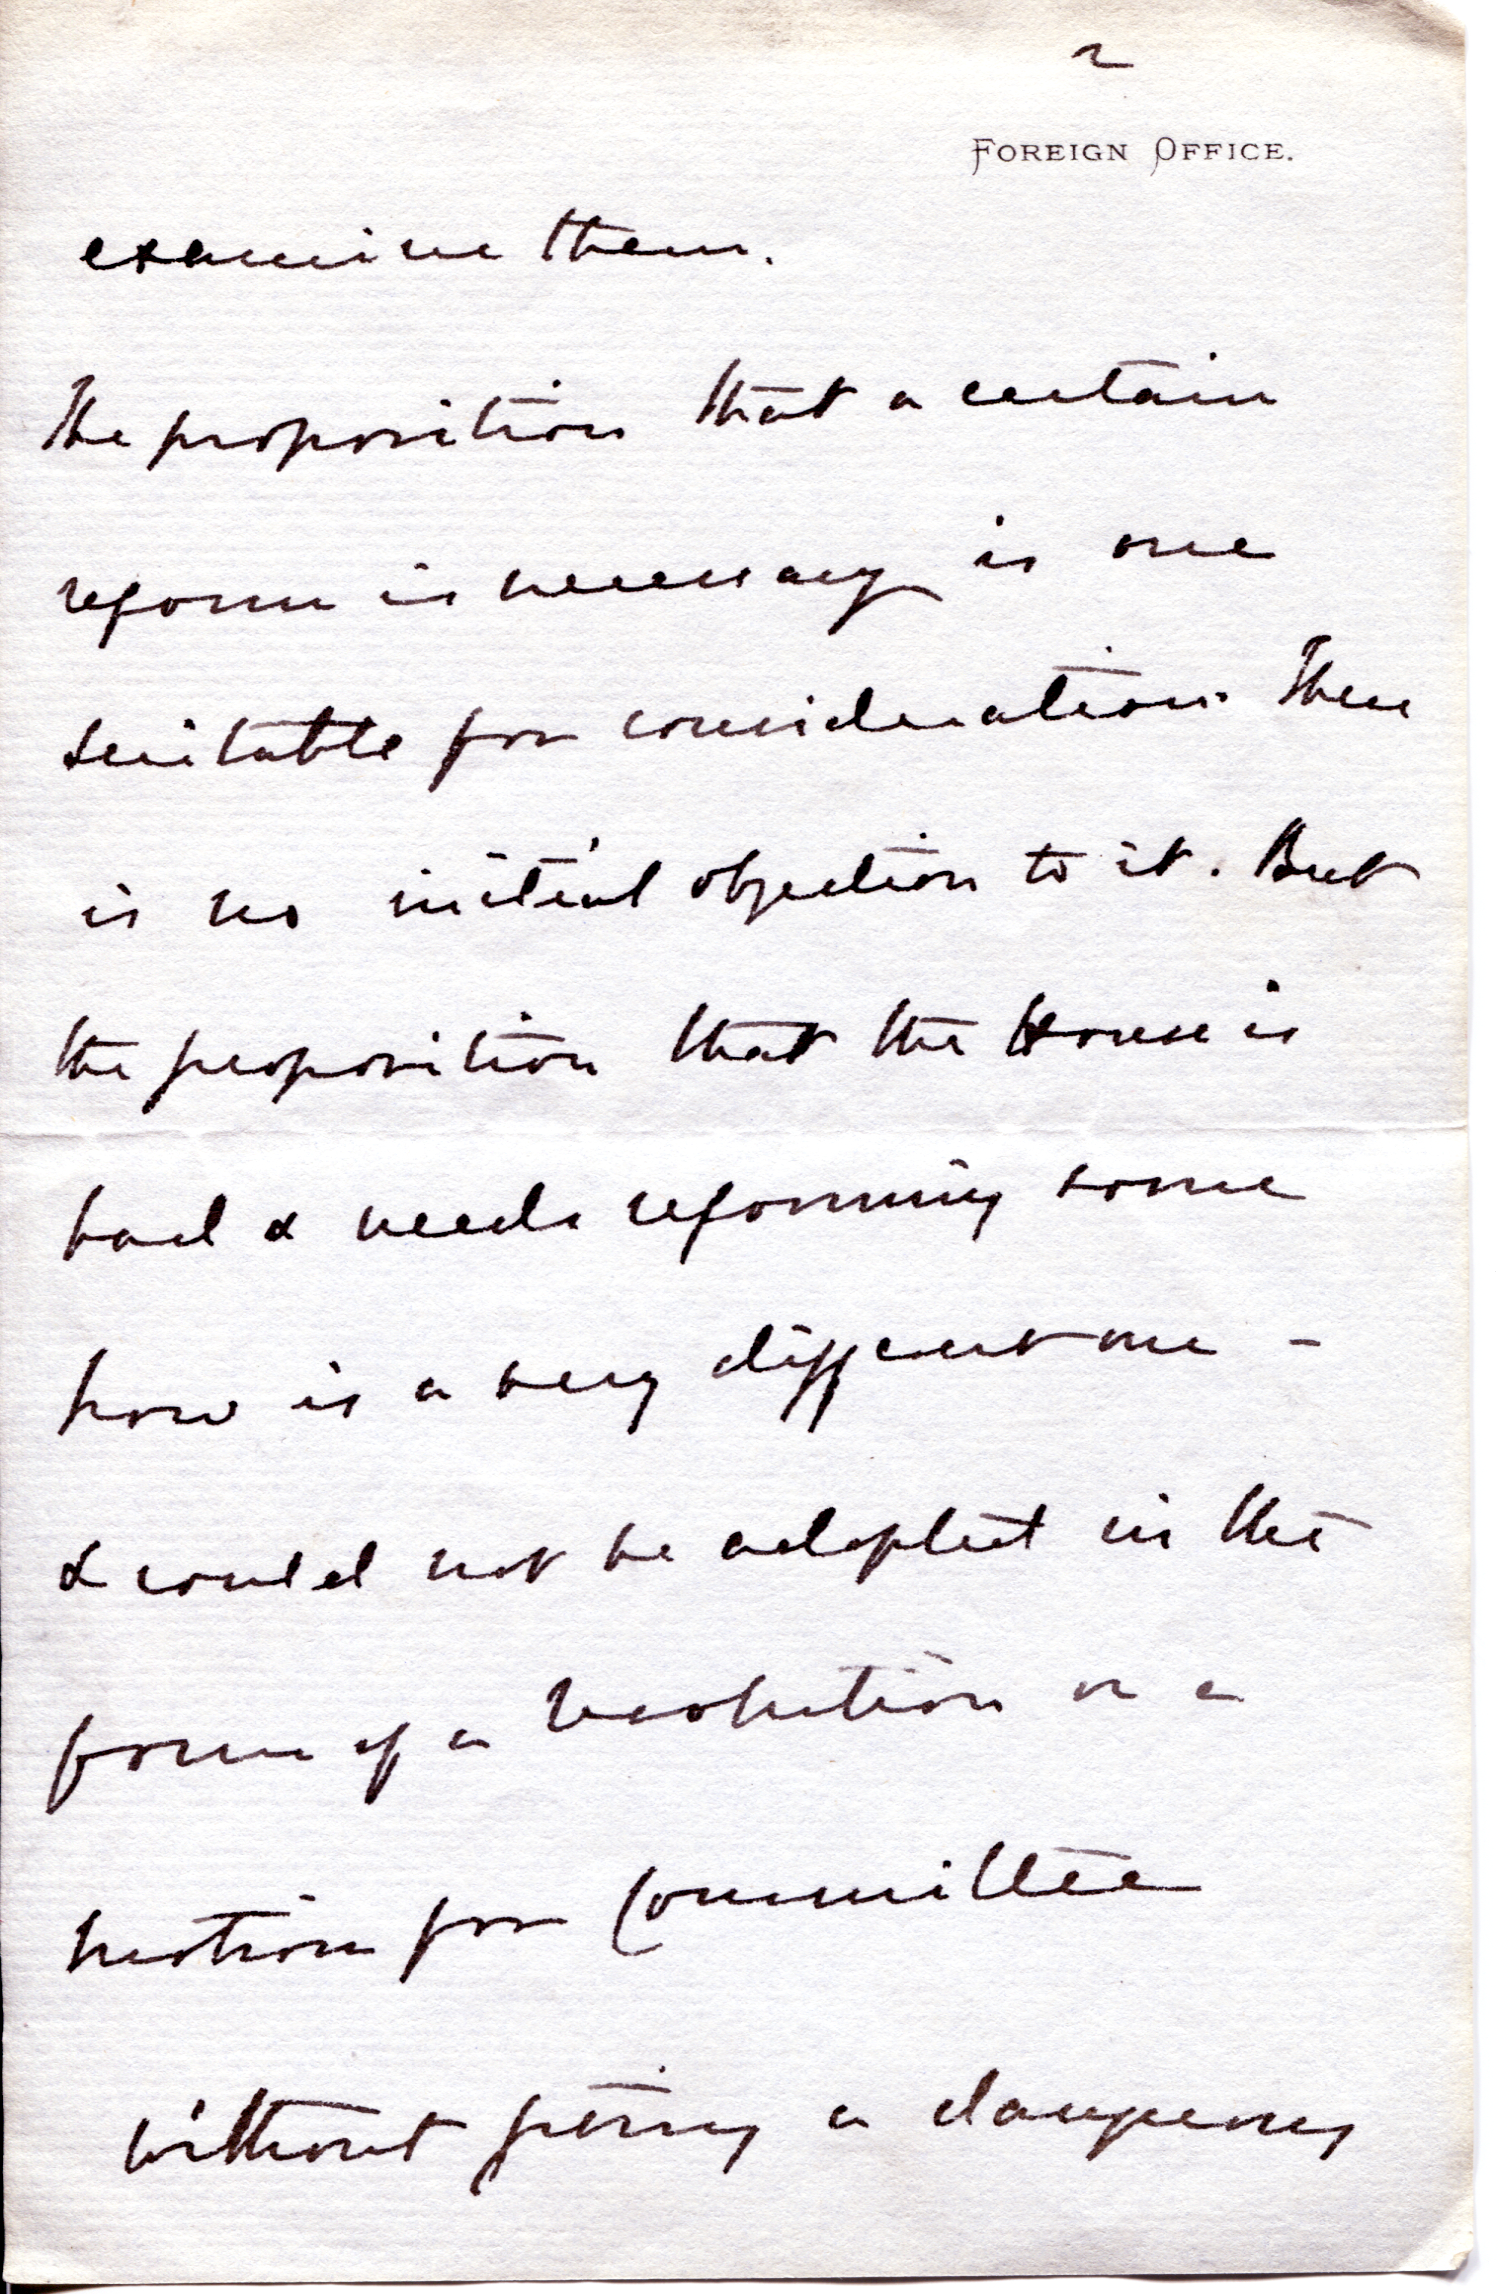 2
FOREIGN OFFICE.
examine them.
The proposition that a certain
reform is necessary is one
suitable for consideration. There
is no initial objection to it. But
the proposition that the House is
bad & needs reforming some
how is a very different one -
& could not be adopted in the
form of a Resolution or a
motion for Committee
without giving a dangerous